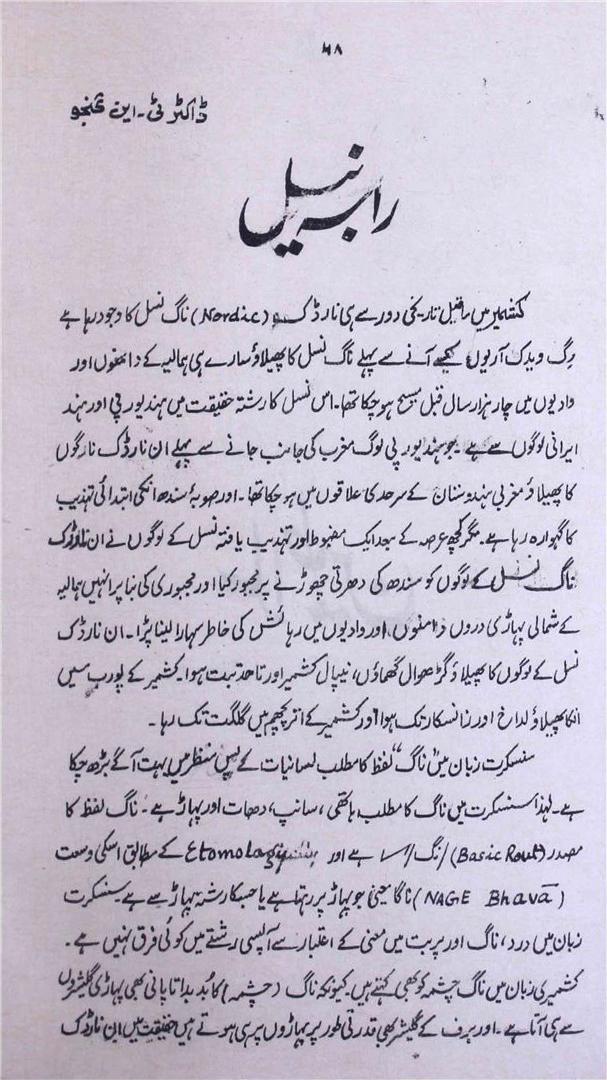 ۵۸
ڈاکٹر ٹی۔ این گنجو
نیل
کشمیر میں ماقبل تاریخی دور سے ہی نارڈک (Nordic) ناگ نسل کا وجود رہا ہے
رِگ ویدک آریوں کے آنے سے پہلے ناگ نسل کا پھیلاؤ سارے ہی ہمالیہ کے دامنوں اور
وادیوں میں چار ہزار سال قبل مسیح ہو چکا تھا۔ اس نسل کا رشتہ حقیقت میں ہند یورپی اور ہند
ایرانی لوگوں سے ہے۔ جو ہند یورپی لوگ مغرب کی جانب جانے سے پہلے ان نارڈک ناگوں
کا پھیلاؤ مغربی ہندوستان کے سرحد کا علاقوں میں ہو چکا تھا۔ اور صوبۂ سندھ انکی ابتدائی تہذیب
کا گہوارہ رہا ہے۔ مگر کچھ عرصہ کے بعد ایک مضبوط اور تہذیب یافتہ نسل کے لوگوں نے ان نارڈک
ناگ نسل کے لوگوں کو سندھ کی دھرتی چھوڑنے پر مجبور کیا اور مجبوری کی بنا پر انہیں ہمالیہ
کے شمالی پہاڑی دروں دامنوں، اور وادیوں میں رہائش کی خاطر سہارا لینا پڑا۔ ان نارڈک
نسل کے لوگوں کا پھیلاؤ گڑھوال گھماؤں، نیپال کشمیر اور تا حد تبت ہوا۔ کشمیر کے پورب میں
انکا پھیلاؤ لداخ اور زانسکار تک ہوا اور کشمیر کے اتر پچھم میں گلگت تک رہا۔
سنسکرت زبان میں "ناگ" لفظ کا مطلب لسانیات کے پس منظر میں بہت آگے بڑھ چکا
ہے۔ لہذا سنسکرت میں ناگ کا مطلب ہاتھی، سانپ، دھات اور پہاڑ ہے۔ ناگ لفظ کا
مصدر (Basic Rout) /نگ/ ہے اور Etomology کے مطابق اسکی وسعت
(NAGE Bhavā) ناگا یعنی جو پہاڑ پر رہتا ہے یا جسکا رشتہ پہاڑ سے ہے۔ سنسکرت
زبان میں درد، ناگ اور پربت میں معنی کے اعتبار سے آپسی رشتے میں کوئی فرق نہیں ہے۔
کشمیری زبان میں ناگ چشمہ کو بھی کہتے ہیں۔ کیونکہ ناگ (چشمہ) کا بُدبداتا پانی بھی پہاڑی گلیشروں
سے ہی آتا ہے۔ اور برف کے گلیشر بھی قدرتی طور پر پہاڑوں پر ہی ہوتے ہیں حقیقت میں ان نارڈک